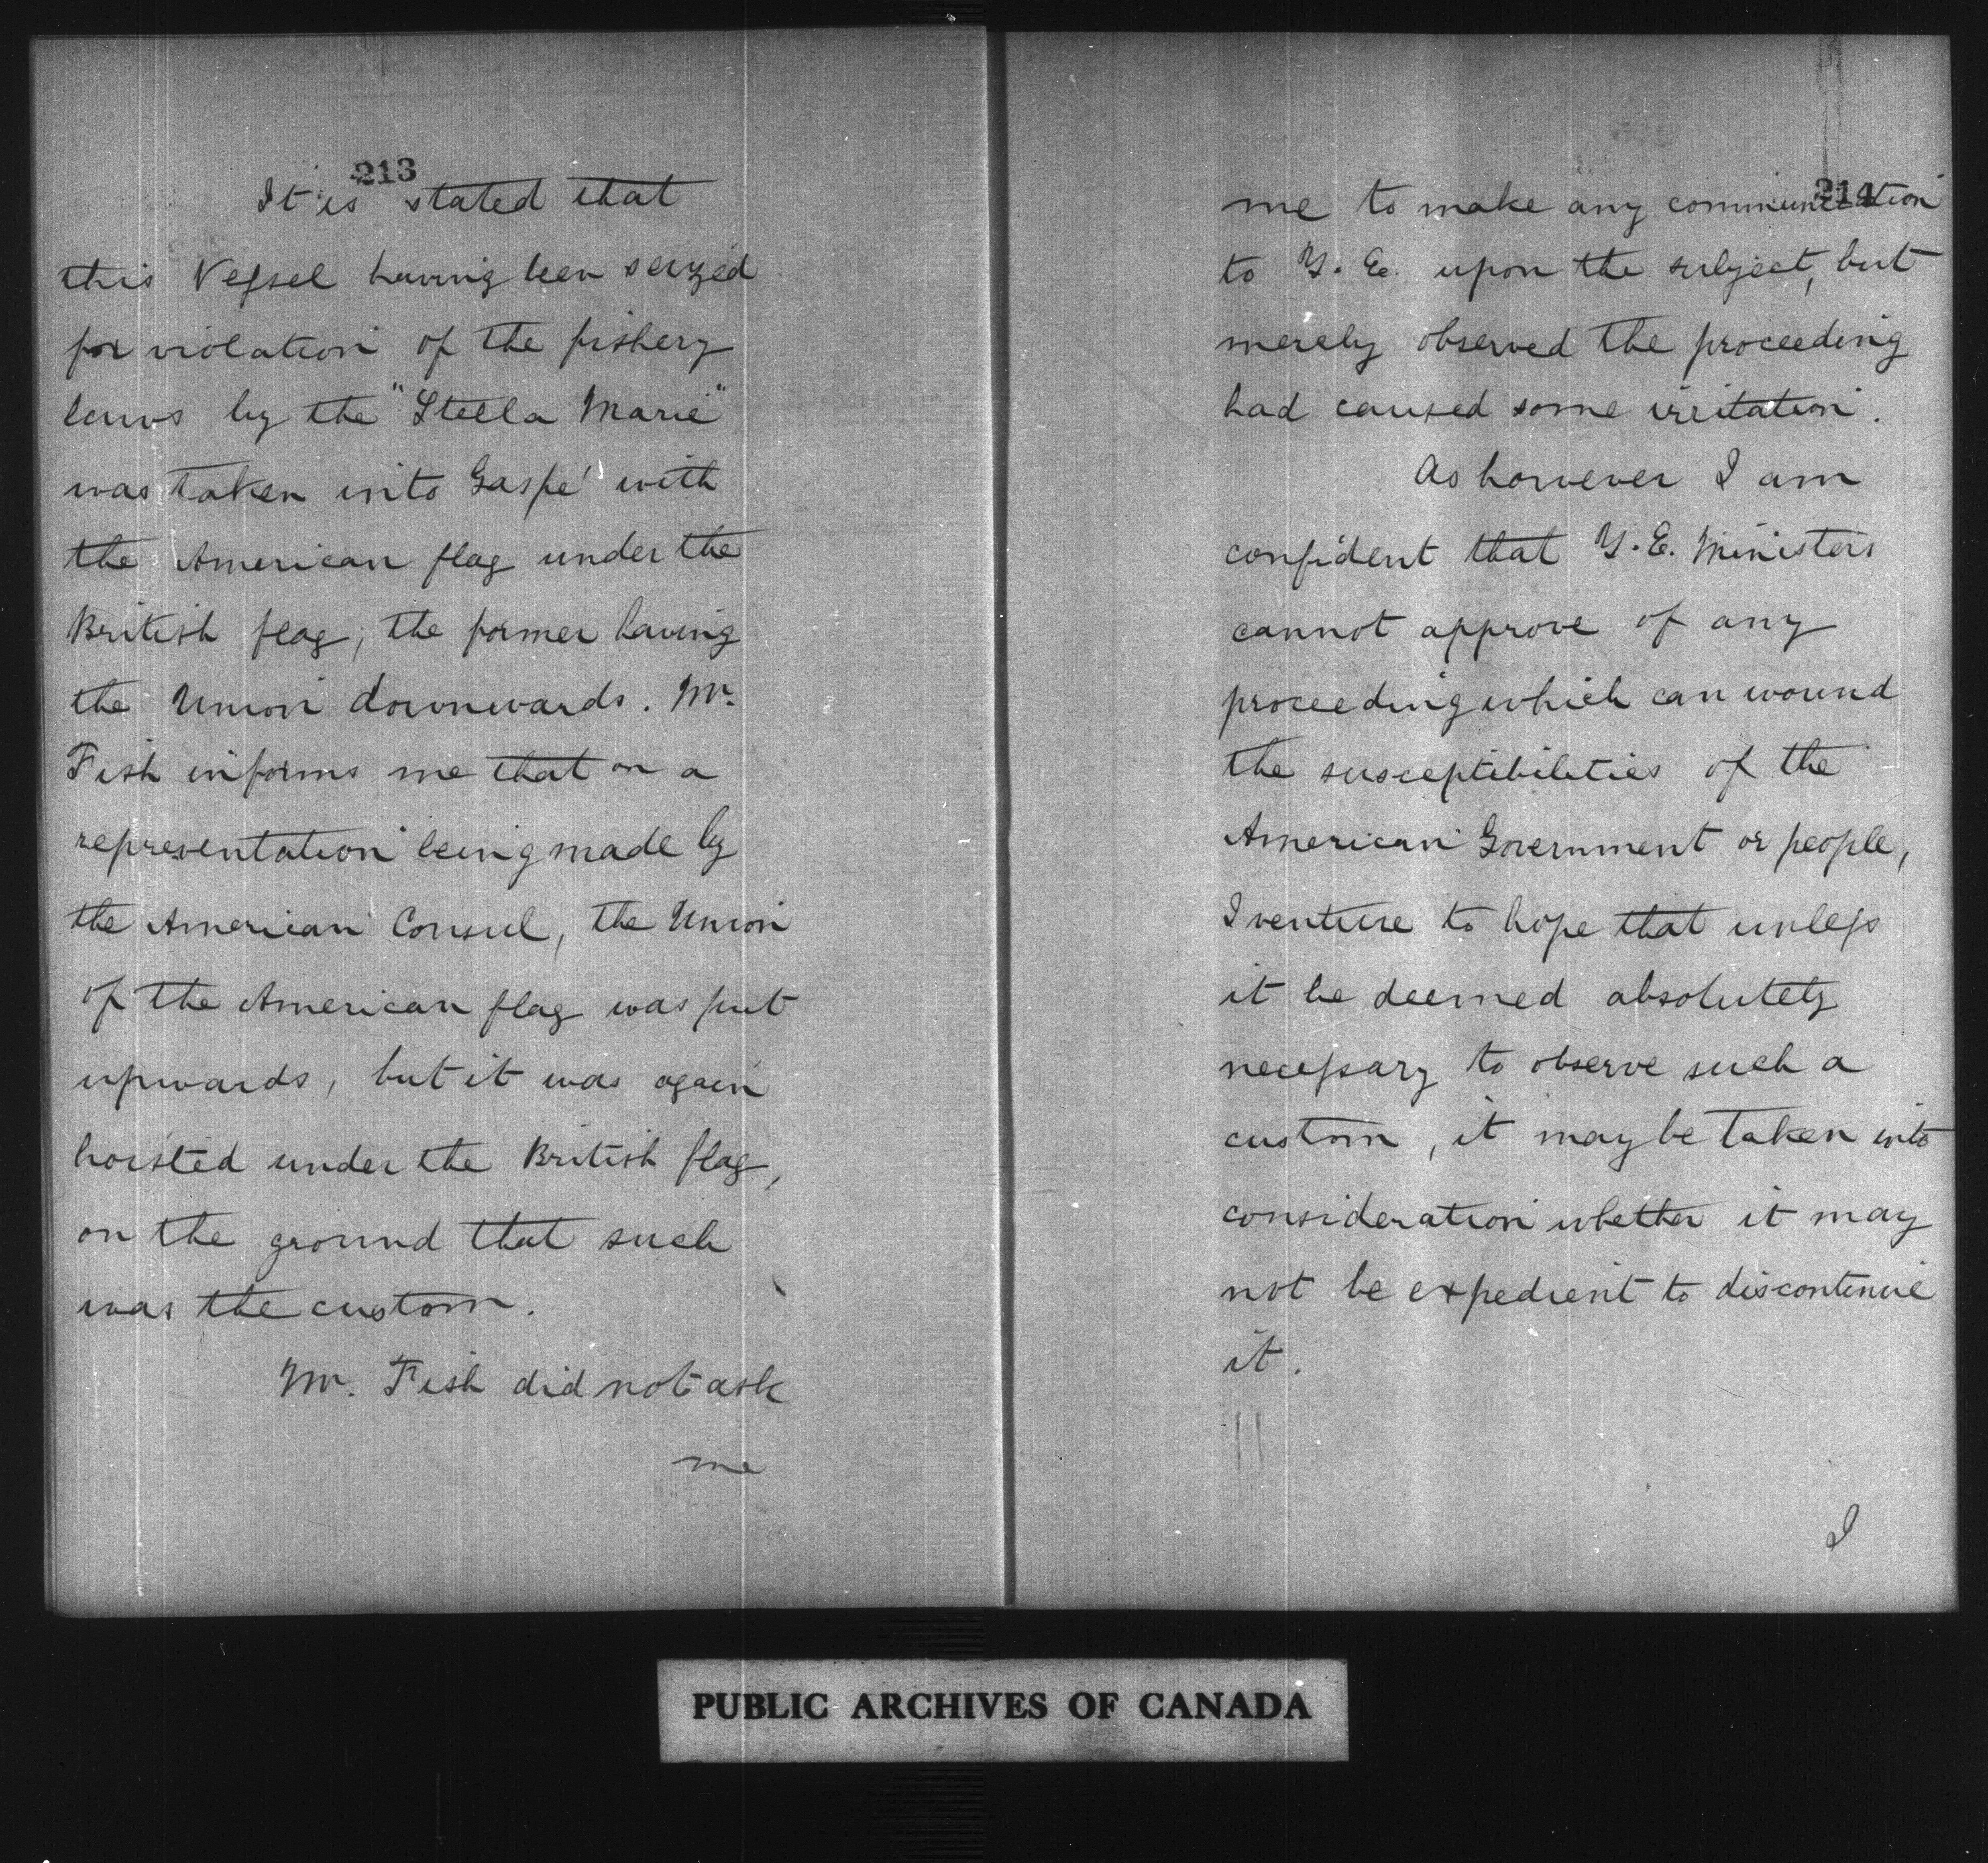 213
It is stated that
this Vessel having been seized
for violation of the fishery
laws by the "Stella Marie"
was taken into Gaspé with
the American flag under the
British flag, the former having
the Union downwards. Mr.
Fish informs me that on a
representation being made by
the American Consul, the Union
of the American flag was put
upwards, but it was again
hoisted under the British flag,
on the ground that such
was the custom.
Mr. Fish did not ask
me
214
me to make any communication
to Y. E. upon the subject, but
merely observed the proceeding
had caused some irritation.
As however I am
confident that Y. E. Ministers
cannot approve of any
proceeding which can wound
the susceptibilities of the
American Government or people,
I venture to hope that unless
it be deemed absolutely
necessary to observe such a
custom, it may be taken into
consideration whether it may
not be expedient to discontinue
it.
I
PUBLIC ARCHIVES OF CANADA